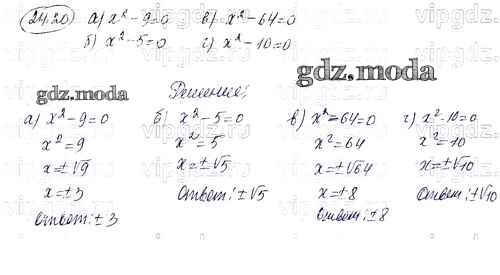 24.20) а) x² - 9 = 0 в) x² - 64 = 0
б) x² - 5 = 0 г) x² - 10 = 0
gdz.moda
gdz.moda
Решение:
а) x² - 9 = 0
x² = 9
x = ±√9
x = ±3
Ответ: ±3
б) x² - 5 = 0
x² = 5
x = ±√5
Ответ: ±√5
в) x² - 64 = 0
x² = 64
x = ±√64
x = ±8
Ответ: ±8
г) x² - 10 = 0
x² = 10
x = ±√10
Ответ: ±√10